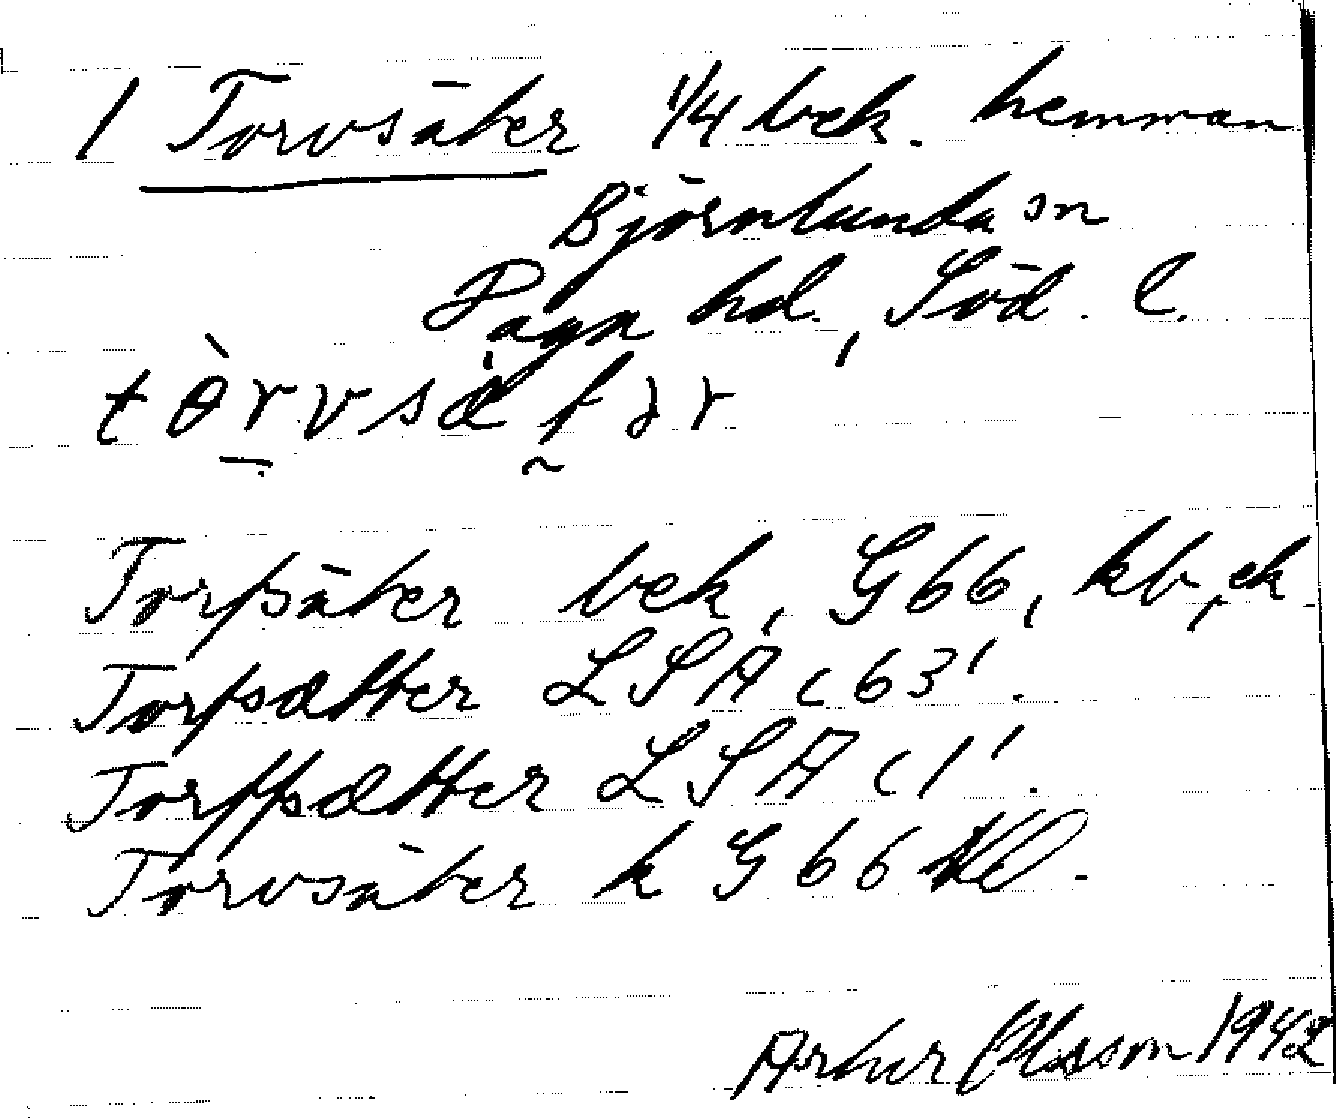 1 Torvsäter 1/4 bek. hemman
Björnlunda sn
Daga hd., Söd. l.
Torpsäter bek, G66, kb, ek
Torpsætter LSA c 63'.
Torppsætter LSA c 1'.
Torvsäter k G66
Arthur Olsson 1942